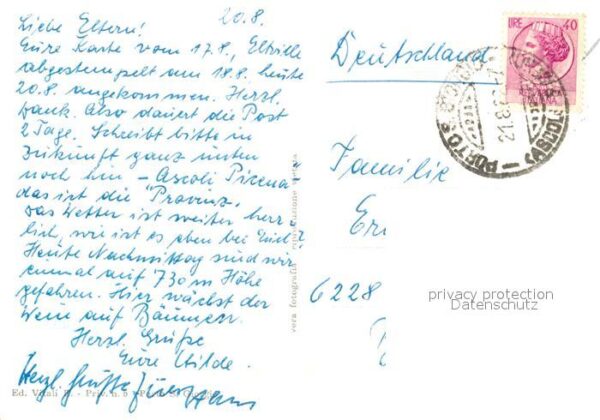 20.8.
Liebe Eltern!
Eure Karte vom 17.8., Eltville
abgestempelt am 18.8. heute
20.8. angekommen. Herzl.
Dank. Also dauert die Post
2 Tage. Schreibt bitte in
Zukunft ganz unten
noch hin - Ascoli Piceno"
das ist die "Provinz.
Das Wetter ist weiter herr-
lich, wie ist es eben bei Euch?
Heute Nachmittag sind wir
einmal auf 730 m Höhe
gefahren. Hier wächst der
Wein auf Bäumen.
Herzl. Grüße
Eure Hilde.
Herzl. Grüße Euer Hans
Ed. Vitali
vera fotografia
Deutschland
LIRE 40
ITALIANA
PORTO S.
21.8
Familie
Er
6228
privacy protection
Datenschutz